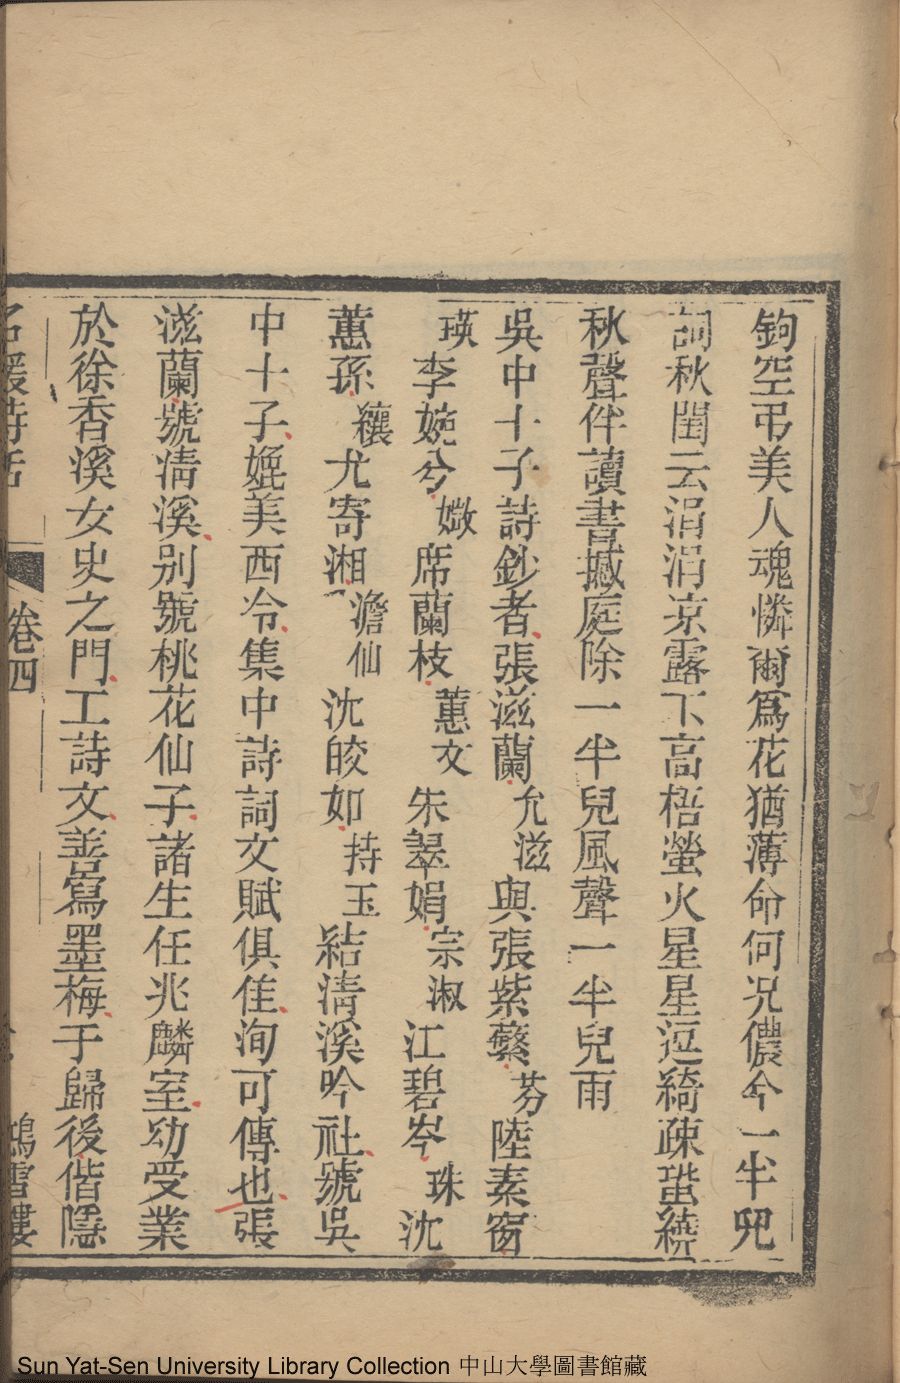 鉤空弔美人魂憐爾爲花猶薄命何况儂今一半兒
詞秋閨云涓涓凉露下高梧螢火星星逗綺疎蛩繞
秋聲伴讀書撼庭除一半兒風聲一半兒雨
吳中十子詩鈔者張滋蘭允滋與張紫蘩芬陸素窗
瑛李婉兮媺席蘭枝蕙文朱翠娟宗淑江碧岑珠沈
蕙孫纕尤寄湘澹仙沈皎如持玉結清溪吟社號吳
中十子媲美西冷集中詩詞文賦俱佳洵可傳也張
滋蘭號清溪別號桃花仙子諸生任兆麟室幼受業
於徐香溪女史之門工詩文善寫墨梅于歸後偕隱
名媛詩話 卷四 鴻雪樓
Sun Yat-Sen University Library Collection 中山大學圖書館藏